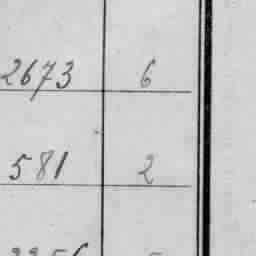 2673 6
581 2